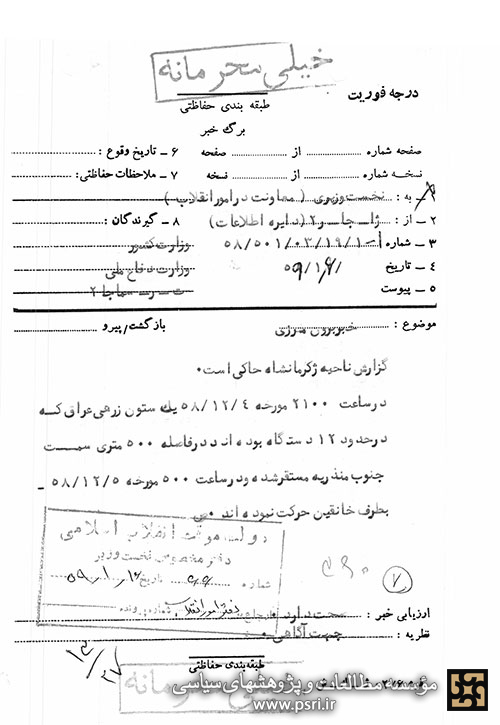 خیلی محرمانه
درجه فوریت
طبقه بندی حفاظتی
برگ خبر
صفحه شماره از صفحه ۶ ـ تاریخ وقوع :
نسخه شماره از نسخه ۷ ـ ملاحظات حفاظتی :
به : نخست وزیری ( معاونت در امور انقلاب )
۲ ـ از : ژاـ جاـ ر۲ (دایره اطلاعات) ۸ ـ گیرندگان :
۳ ـ شماره ۵۸/۵۰۱/۰۲/۱۹/۱ وزارت کشور
۴ ـ تاریخ ۵۹/۱/۶ وزارت دفاع ملی
۵ ـ پیوست سماجا ۲
موضوع : خبر برون مرزی بازگشت/پیرو
گزارش ناحیه ژکرمانشاه حاکی است .
در ساعت ۲۱۰۰ مورخه ۵۸/۱۲/۴ یك ستون زرهی عراق که
در حدود ۱۲ دستگاه بوده اند در فاصله ۵۰۰ متری سمت
جنوب منذریه مستقر شده و در ساعت ۵۰۰ مورخه ۵۸/۱۲/۵ ـ
بطرف خانقین حرکت نموده اند .
دولت موقت انقلاب اسلامی
دفتر مخصوص نخست وزیر
شماره تاریخ ۵۹
دفتر امور انقلاب شماره پرونده
۷
ارزیابی خبر : صحت دارد
نظریه : جهت آگاهی
۱۲/۲۷
طبقه بندی حفاظتی
خیلی محرمانه
مؤسسه مطالعات و پژوهشهای سیاسی
www.psri.ir